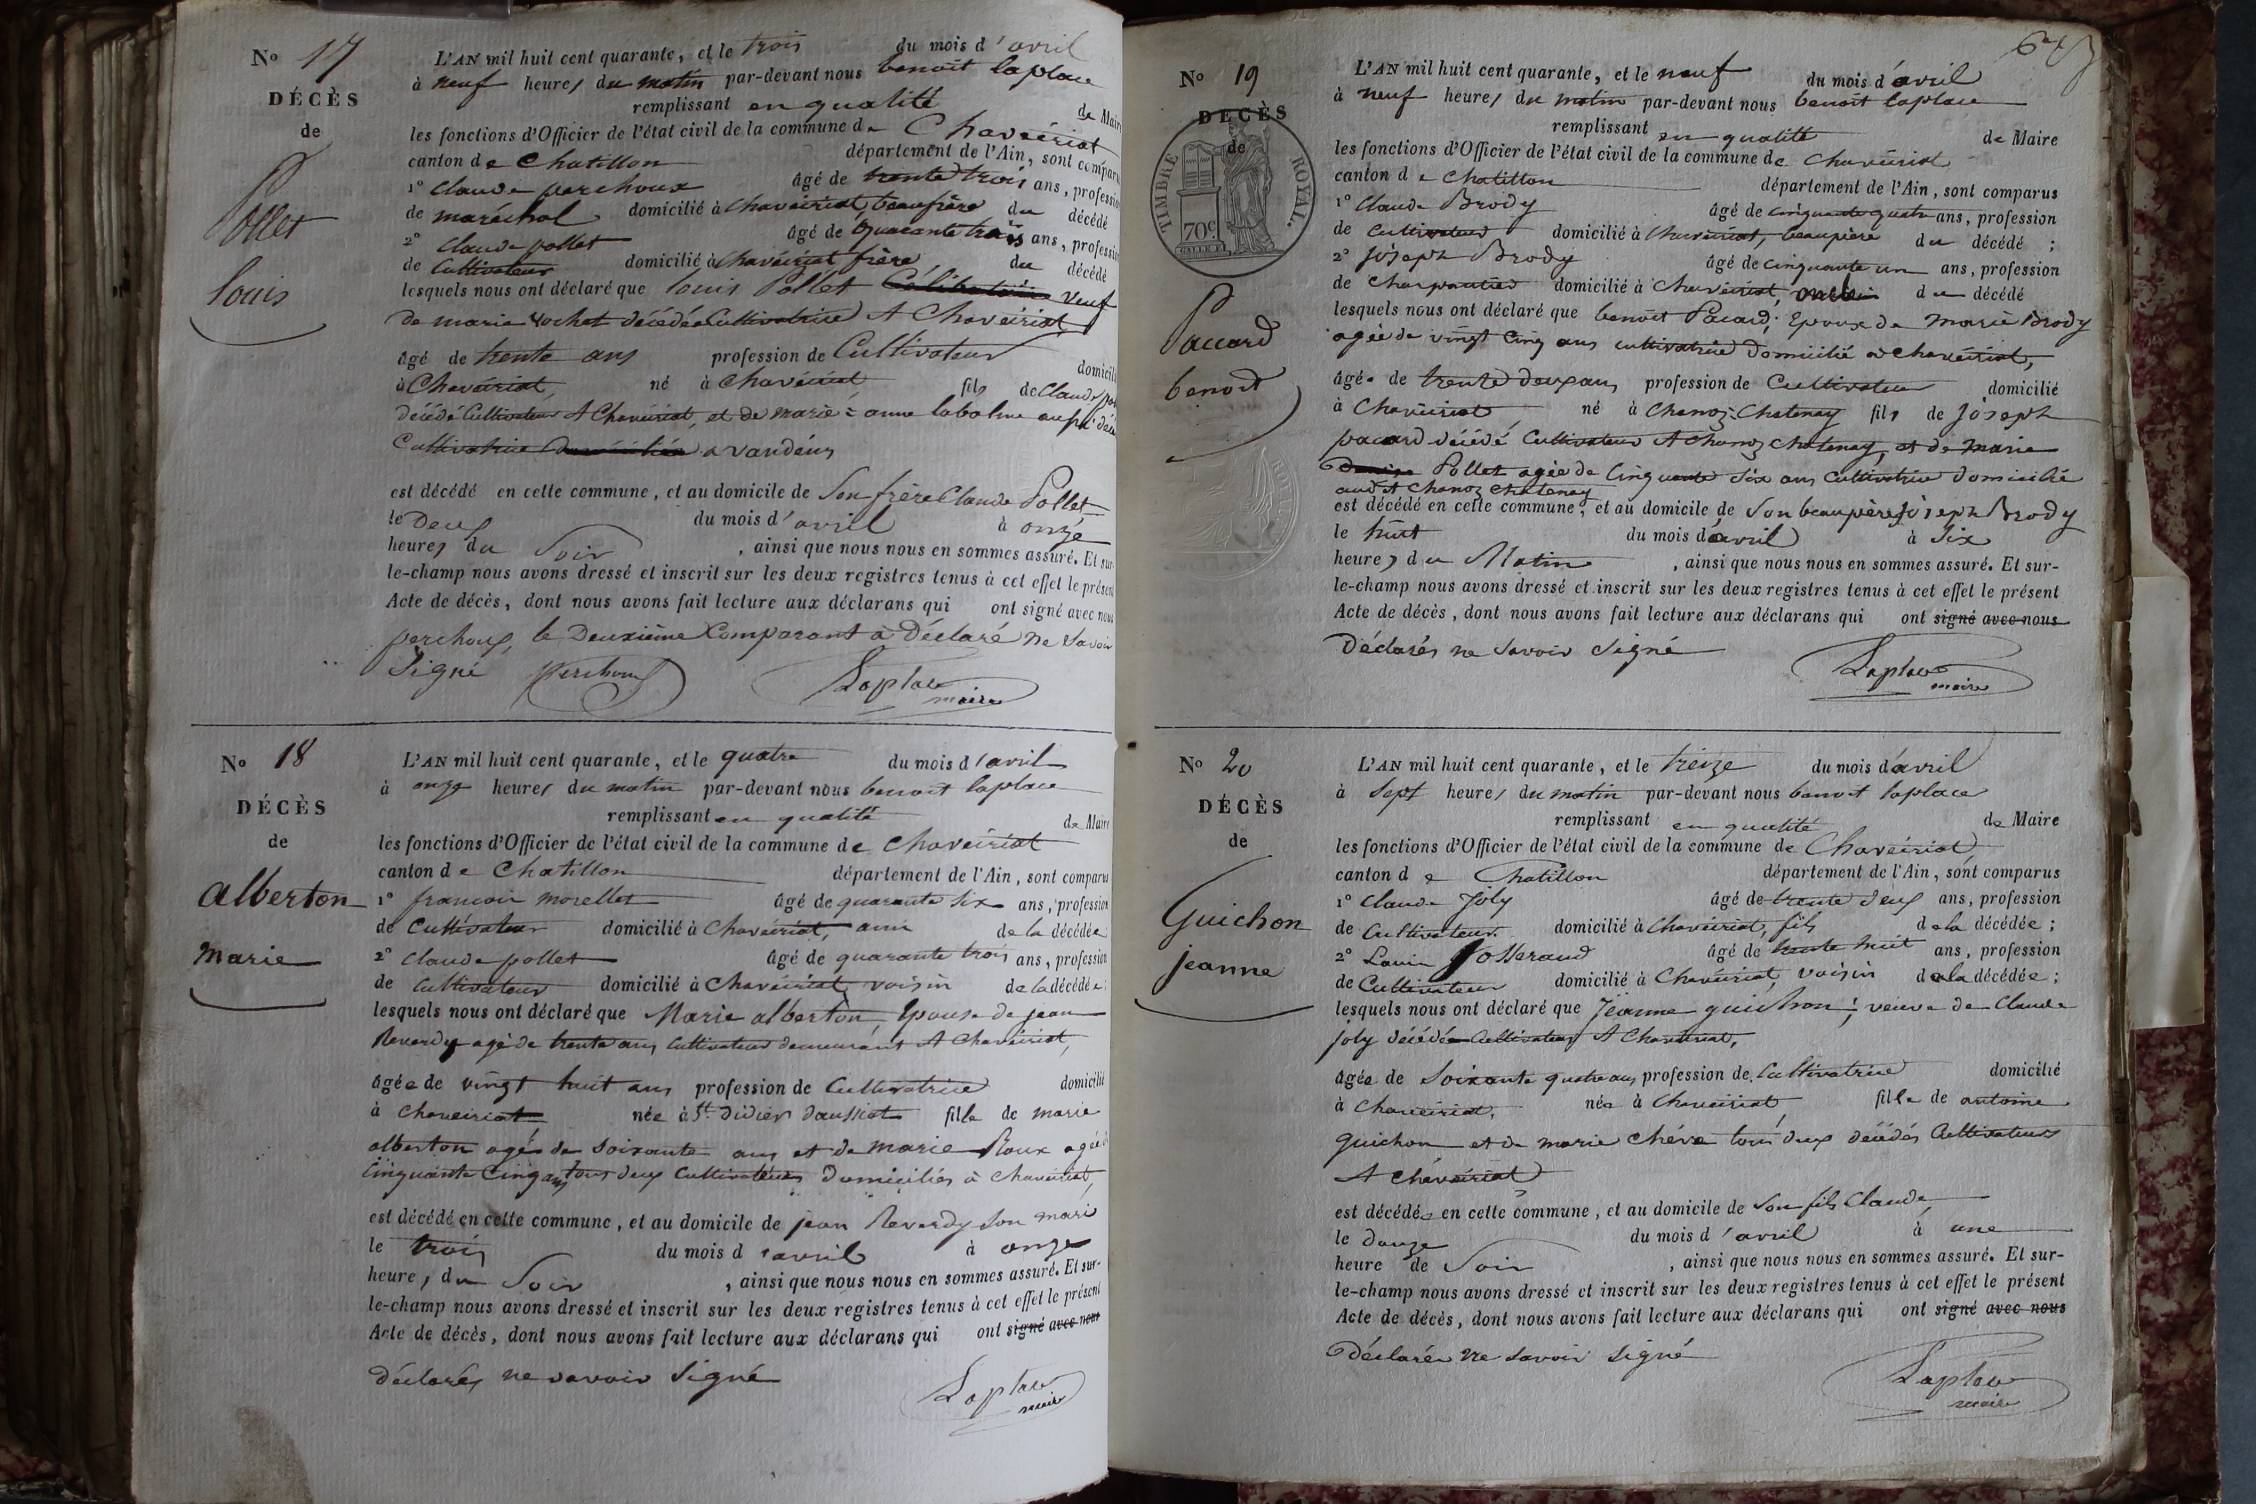 No 17
DÉCÈS
de
Pollet
Louis
L'AN mil huit cent quarante, et le trois du mois d'avril
à neuf heures du matin par-devant nous benoît laplace
remplissant en qualité de Maire
les fonctions d'Officier de l'état civil de la commune de Chaveiriat
canton de Chatillon département de l'Ain, sont comparus
1° Claude perchoux âgé de trente trois ans, profession
de maréchal domicilié à Chaveiriat, beaufrère du décédé
2° Claude pollet âgé de quarante trois ans, profession
de Cultivateur domicilié à Chaveiriat frère du décédé
lesquels nous ont déclaré que louis Pollet Célibataire veuf
de marie décédée Cultivatrice A Chaveiriat,
âgé de trente ans profession de Cultivateur domicilié
à Chaveiriat, né à Chaveiriat, fils de Claude
décédé Cultivateur A Chaveiriat, et de marie = anne labalme aussi
Cultivatrice a vandeins
est décédé en cette commune, et au domicile de Son frère Claude Pollet
le Deux du mois d'avril à onze
heures du Soir, ainsi que nous nous en sommes assuré. Et sur-
le-champ nous avons dressé et inscrit sur les deux registres tenus à cet effet le présent
Acte de décès, dont nous avons fait lecture aux déclarans qui ont signé avec nous
perchoux, le Deuxième Comparant à Déclaré ne Savoir
Signé Perchoux Laplace
maire
No 18
DÉCÈS
de
alberton
Marie
L'AN mil huit cent quarante, et le quatre du mois d'avril
à onze heures du matin par-devant nous benoît laplace
remplissant en qualité de Maire
les fonctions d'Officier de l'état civil de la commune de Chaveiriat
canton de Chatillon département de l'Ain, sont comparus
1° francois morellet âgé de quarante six ans, profession
de Cultivateur domicilié à Chaveiriat, ami de la décédée
2° Claude pollet âgé de quarante trois ans, profession
de Cultivateur domicilié à Chaveiriat, voisin de la décédée;
lesquels nous ont déclaré que Marie alberton, Epouse de jean
Reverdy agé de trente ans Cultivateur demeurant A Chaveiriat,
âgée de vingt huit ans profession de Cultivatrice domicilié
à Chaveiriat née à St didier daussiat fille de marie
alberton agé de soixante ans et de marie Roux agée
Cinquante Cinq ans tous deux Cultivateurs Domiciliés à Chaveiriat,
est décédé en cette commune, et au domicile de jean Reverdy son mari
le trois du mois d'avril à onze
heures du Soir, ainsi que nous nous en sommes assuré. Et sur-
le-champ nous avons dressé et inscrit sur les deux registres tenus à cet effet le présent
Acte de décès, dont nous avons fait lecture aux déclarans qui ont signé avec nous
déclarés ne savoir Signé
Laplace
maire
64
No 19
DÉCÈS
de
TIMBRE ROYAL.
70c
Paccard
benoit
L'AN mil huit cent quarante, et le neuf du mois d'avril
à neuf heures du matin par-devant nous benoît laplace
remplissant en qualité de Maire
les fonctions d'Officier de l'état civil de la commune de Chaveiriat
canton de Chatillon département de l'Ain, sont comparus
1° Claude Brody âgé de cinquante quatre ans, profession
de Cultivateur domicilié à Chaveiriat, beaupère du décédé;
2° Joseph Brody âgé de cinquante un ans, profession
de Charpantier domicilié à Chaveiriat, oncle du décédé
lesquels nous ont déclaré que benoît Pacard, Epoux de marie Brody
agée de vingt Cinq ans cultivatrice domicilié a Chaveiriat,
âgé de trente deux ans profession de Cultivateur domicilié
à Chaveiriat né à Chanoz-Chatenay fils de Joseph
pacard décédé Cultivateur A Chanoz Chatenay, et de marie
Pollet agée de Cinquante Six ans Cultivatrice domiciliée
audit Chanoz Chatenay
est décédé en cette commune, et au domicile de Son beaupère Joseph Brody
le huit du mois d'avril à Six
heures du Matin, ainsi que nous nous en sommes assuré. Et sur-
le-champ nous avons dressé et inscrit sur les deux registres tenus à cet effet le présent
Acte de décès, dont nous avons fait lecture aux déclarans qui ont signé avec nous
Déclarés ne Savoir Signé
Laplace
maire
No 20
DÉCÈS
de
Guichon
jeanne
L'AN mil huit cent quarante, et le treize du mois d'avril
à Sept heures du matin par-devant nous benoit laplace
remplissant en qualité de Maire
les fonctions d'Officier de l'état civil de la commune de Chaveiriat
canton de Chatillon département de l'Ain, sont comparus
1° Claude Joly âgé de trente deux ans, profession
de Cultivateur domicilié à Chaveiriat, fils de la décédée;
2° Louis Josserand âgé de trente huit ans, profession
de Cultivateur domicilié à Chaveiriat, voisin de la décédée;
lesquels nous ont déclaré que Jeanne guichon, veuve de Claude
joly décédé Cultivateur A Chaveiriat,
âgée de Soixante quatre ans profession de Cultivatrice domicilié
à Chaveiriat, née à Chaveiriat, fille de antoine
guichon et de marie Chéve tous deux décédés Cultivateurs
A Chaveiriat
est décédée en cette commune, et au domicile de Son fils Claude,
le Douze du mois d'avril à une
heure de Soir, ainsi que nous nous en sommes assuré. Et sur-
le-champ nous avons dressé et inscrit sur les deux registres tenus à cet effet le présent
Acte de décès, dont nous avons fait lecture aux déclarans qui ont signé avec nous
Déclarés ne savoir signé
Laplace
maire